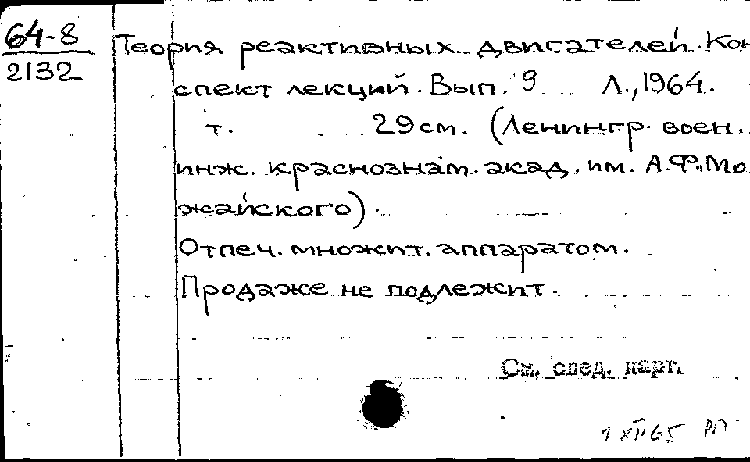 64-8
2132
Теория реактивных двигателей. Кон-
спект лекций. Вып. 9 Л., 1964.
т. 29см. (Ленингр. воен.
инж. краснознам. акад. им. А.Ф. Мо
жайского).
Отпеч. множит. аппаратом.
Продаже не подлежит.
См. след. карт.
1 XII 65